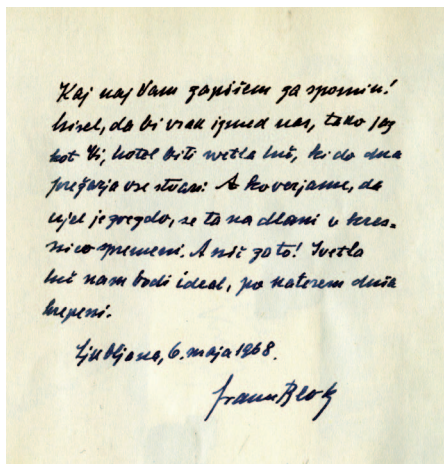 Kaj naj Vam zapišem za spomin!
Misel, da bi vsak izmed nas, tako jaz
kot Vi, hotel biti svetla luč, ki do dna
prežarja vse stvari. A ko verjame, da
ujel je zvezdo, se ta na dlani v kres-
nico spremeni. A nič zato! Svetla
luč nam bodi ideal, po katerem duša
hrepeni.
Ljubljana, 6. maja 1968.